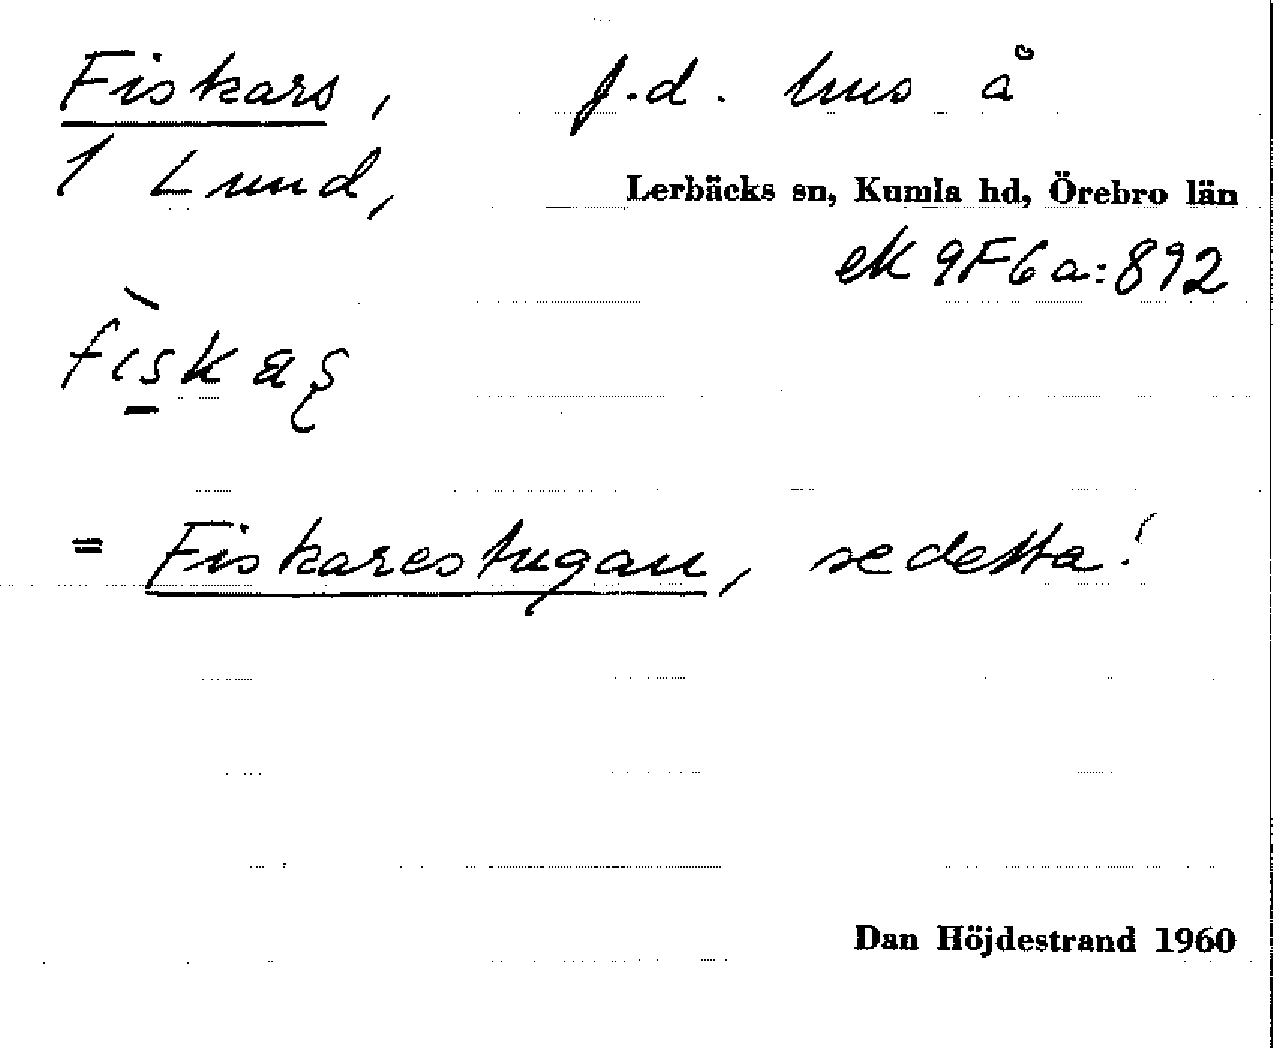 Fiskars, f.d. hus å
1 Lund, Lerbäcks sn, Kumla hd, Örebro län
ek 9F6a:892
fìs̱kaʂ
= Fiskarestugan, se detta!
Dan Höjdestrand 1960